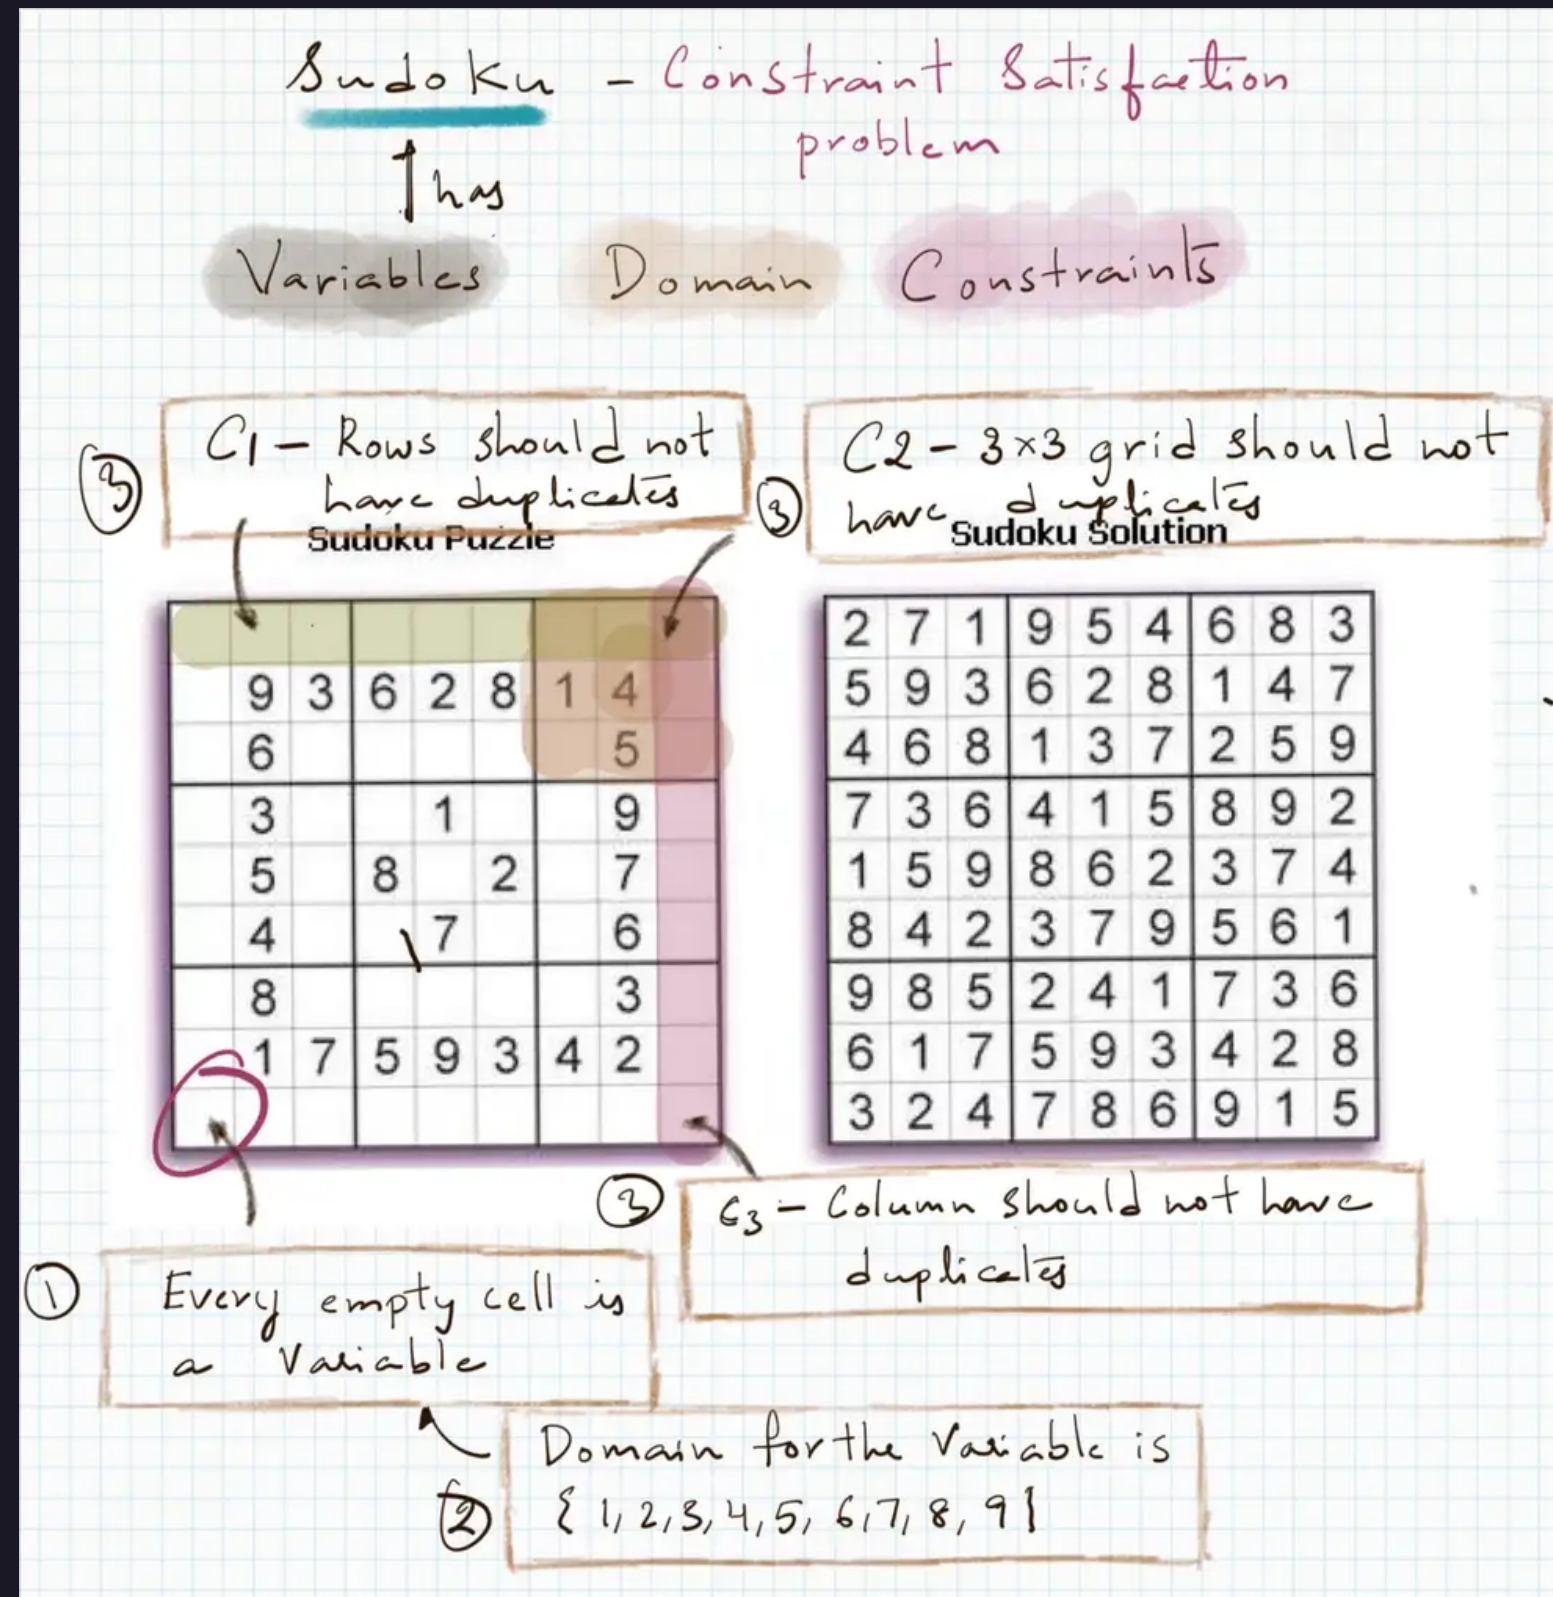 Sudoku - Constraint Satisfaction
problem
has
Variables Domain Constraints
③ C1 - Rows should not
have duplicates
③ C2 - 3x3 grid should not
have duplicates
Sudoku Puzzle
Sudoku Solution
9 3 6 2 8 1 4
6 5
3 1 9
5 8 2 7
4 7 6
8 3
1 7 5 9 3 4 2
2 7 1 9 5 4 6 8 3
5 9 3 6 2 8 1 4 7
4 6 8 1 3 7 2 5 9
7 3 6 4 1 5 8 9 2
1 5 9 8 6 2 3 7 4
8 4 2 3 7 9 5 6 1
9 8 5 2 4 1 7 3 6
6 1 7 5 9 3 4 2 8
3 2 4 7 8 6 9 1 5
③ C3 - Column should not have
duplicates
① Every empty cell is
a Variable
② Domain for the Variable is
{ 1, 2, 3, 4, 5, 6, 7, 8, 9 }